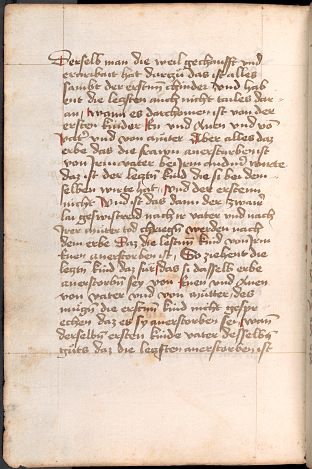 Derselb man die weil gechaufft vnd
erarbait hat darzu das ist alles
sambt der ersten chinder vnd hab
ent die legsten auch nicht tailes dar
an wann es darchomen ist von der
ersten kinder En vnd Anen vnd vo
vatter vnd von mutter Aber alles daz
erbe das die frawn anerstorben ist
von Irem vater bei Irm wirte
daz ist der legsten kind die si bei dem
selben wirte hat vnd der ersten
nicht Vnd ist das dann der zwair
lai geswistreid nach ir vater vnd nach
Irer muter tod chrieg werden nach
dem erbe Daz die lesten kind von Irm
Enen anerstorben ist So ziehent die
legsten kind daz für das si dasselb erbe
anerstorben sey von Enen vnd Anen
von vater vnd von mutter des
mugen die ersten kind nicht gespr
echen daz es sy anerstorben sei wan
derselben ersten kinde vater desselben
guts daz die legsten anerstorben ist